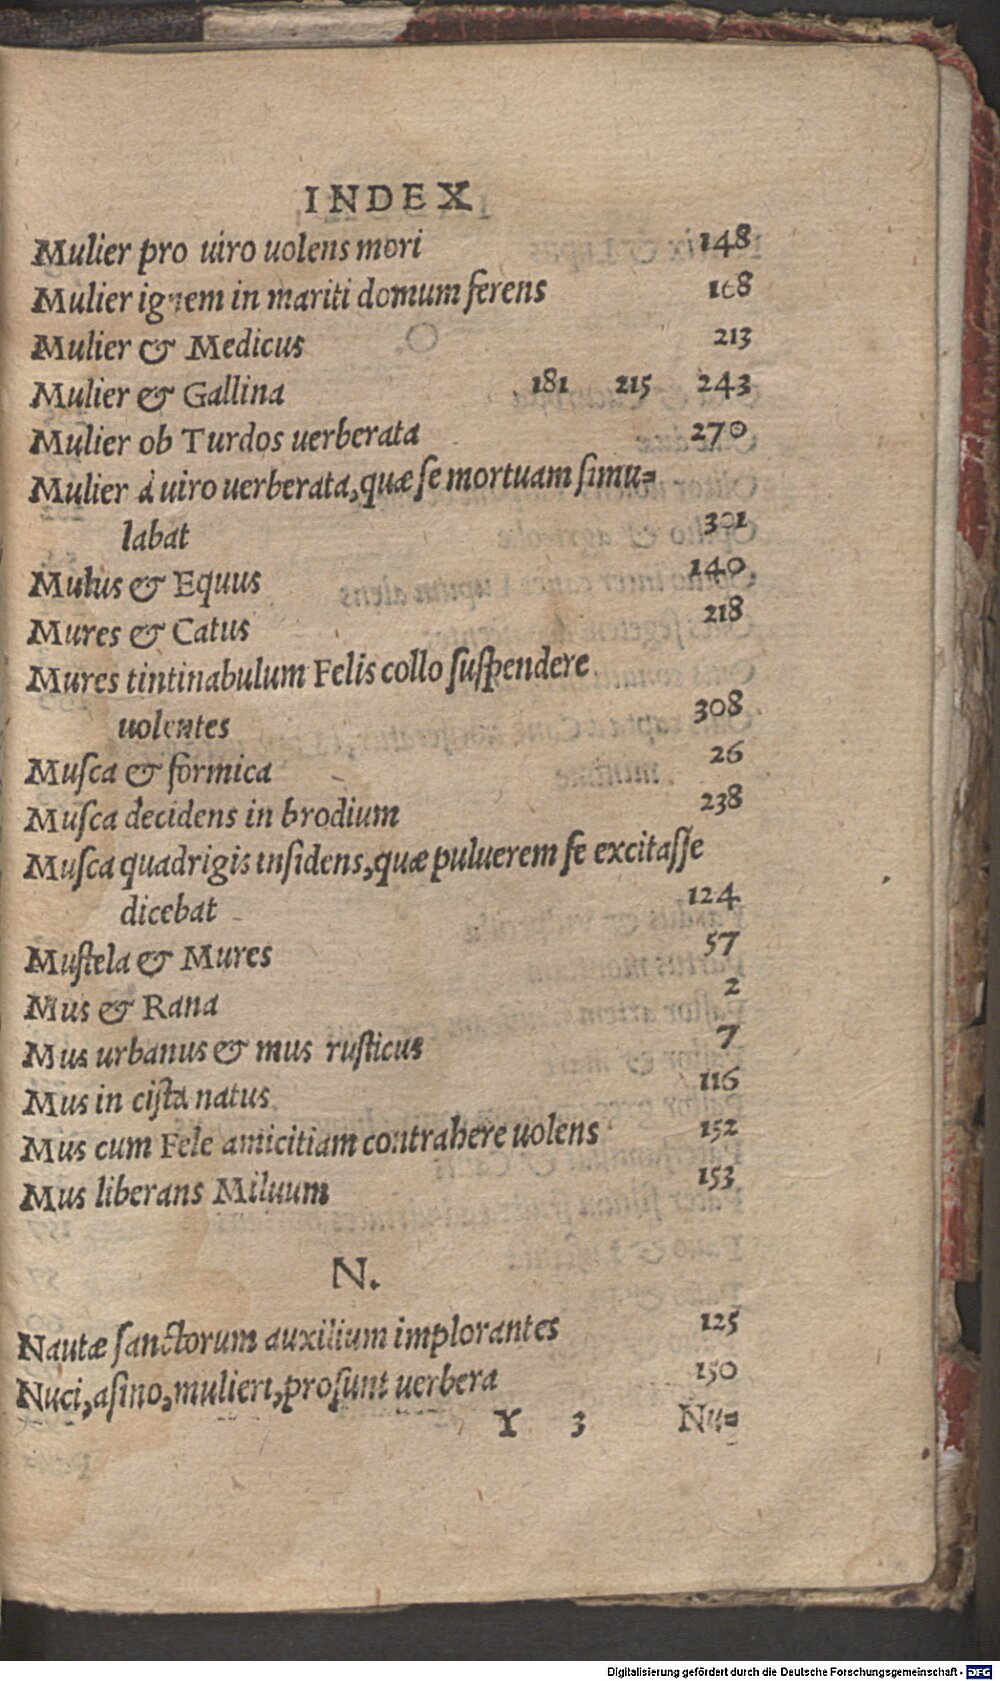 INDEX
Mulier pro uiro uolens mori 148
Mulier ignem in mariti domum ferens 168
Mulier & Medicus 213
Mulier & Gallina 181 215 243
Mulier ob Turdos uerberata 270
Mulier à uiro uerberata, quæ se mortuam ſimu=
labat 301
Mulus & Equus 140
Mures & Catus 218
Mures tintinabulum Felis collo ſuſpendere
uolentes 308
Muſca & formica 26
Muſca decidens in brodium 238
Muſca quadrigis inſidens, quæ puluerem ſe excitaſſe
dicebat 124
Muſtela & Mures 57
Mus & Rana 2
Mus urbanus & mus ruſticus 7
Mus in ciſta natus 116
Mus cum Fele amicitiam contrahere uolens 152
Mus liberans Miluum 153
N.
Nautæ ſanctorum auxilium implorantes 125
Nuci, aſino, mulieri, proſunt uerbera 150
Y 3 Nu=
Digitalisierung gefördert durch die Deutsche Forschungsgemeinschaft - DFG